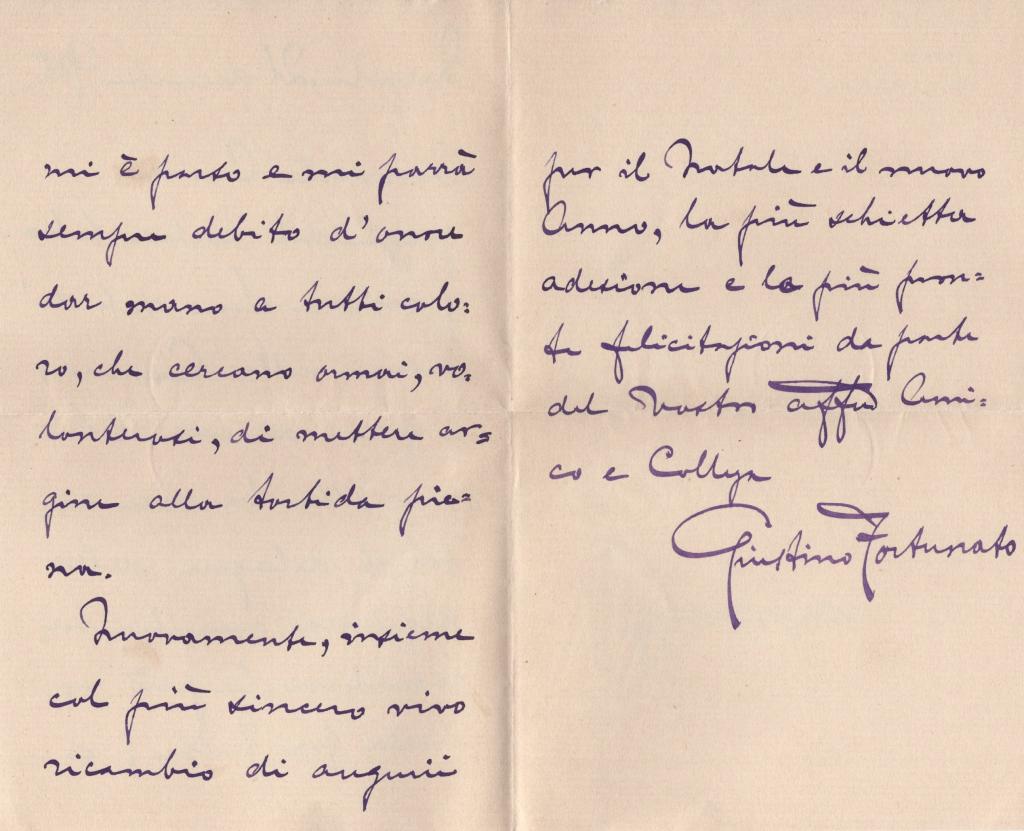 mi è parso e mi parrà
sempre debito d'onore
dar mano a tutti colo=
ro, che cercano ormai, vo=
lonterosi, di mettere ar=
gine alla torbida pie=
na.
Nuovamente, insieme
col più sincero vivo
ricambio di augurii
per il Natale e il nuovo
Anno, la più schietta
adesione e le più pron=
te felicitazioni da parte
del Vostro affmo Ami=
co e Collega
Giustino Fortunato